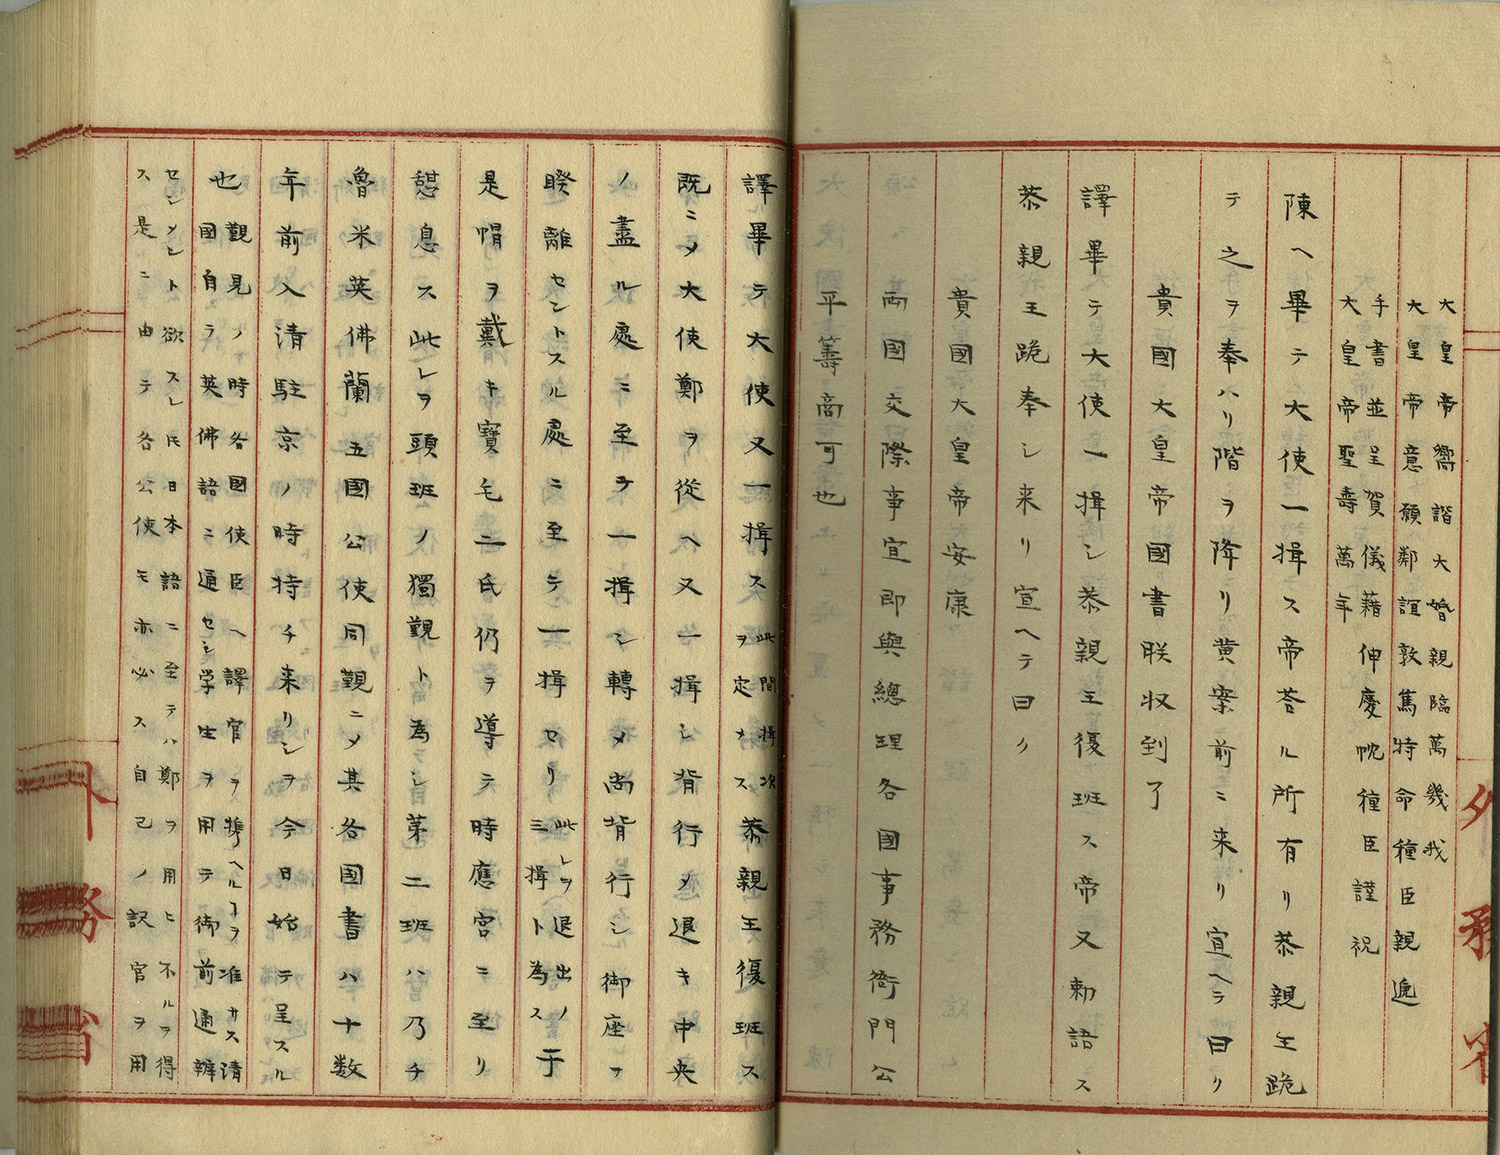 大皇帝嚮諧大婚親臨萬幾我
大皇帝意願鄰誼敦篤特命種臣親遞
手書並呈賀儀藉伸慶忱種臣謹祝
大皇帝聖壽萬年
陳ヘ畢テ大使一揖ス帝荅ル所有リ恭親王跪
テ之ヲ奉ハリ階ヲ降リ黄案前ニ来リ宣ヘラ曰ク
貴國大皇帝國書朕収到了
譯畢テ大使一揖シ恭親王復班ス帝又勅語ス
恭親王跪奉シ来リ宣ヘテ曰ク
貴國大皇帝安康
両國交際事宜即與總理各國事務衙門公
平籌商可也
譯畢テ大使又一揖ス此間揖次ヲ定メス恭親王復班ス
既ニメ大使鄭ヲ從ヘ又一揖シ背行メ退キ中央
ノ盡ル處ニ至ラ一揖シ轉メ尚背行シ御座ヲ
暌離セントスル處ニ至テ一揖セリ此レヲ退出ノ三揖ト為ス于
是帽ヲ戴キ寶毛二氏仍ヲ導テ時應宮ニ至リ
憇息ス此レヲ頭班ノ獨覲ト為シ第二班ハ乃チ
魯米英佛蘭五國公使同覲ニメ其各國書ハ十数
年前入清駐京ノ時持チ来リシヲ今日始テ呈スル
也覲見ノ時各國使臣ヘ譯官ヲ携ヘルヿヲ准サス清
國自ラ英佛語ニ通セシ学生ヲ用テ御前通辨
センメント欲スレ圧日本語ニ至テハ鄭ヲ用ヒ不ルヲ得
ス是ニ由テ各公使モ亦必ス自己ノ訳官ヲ用
外務省
外務省